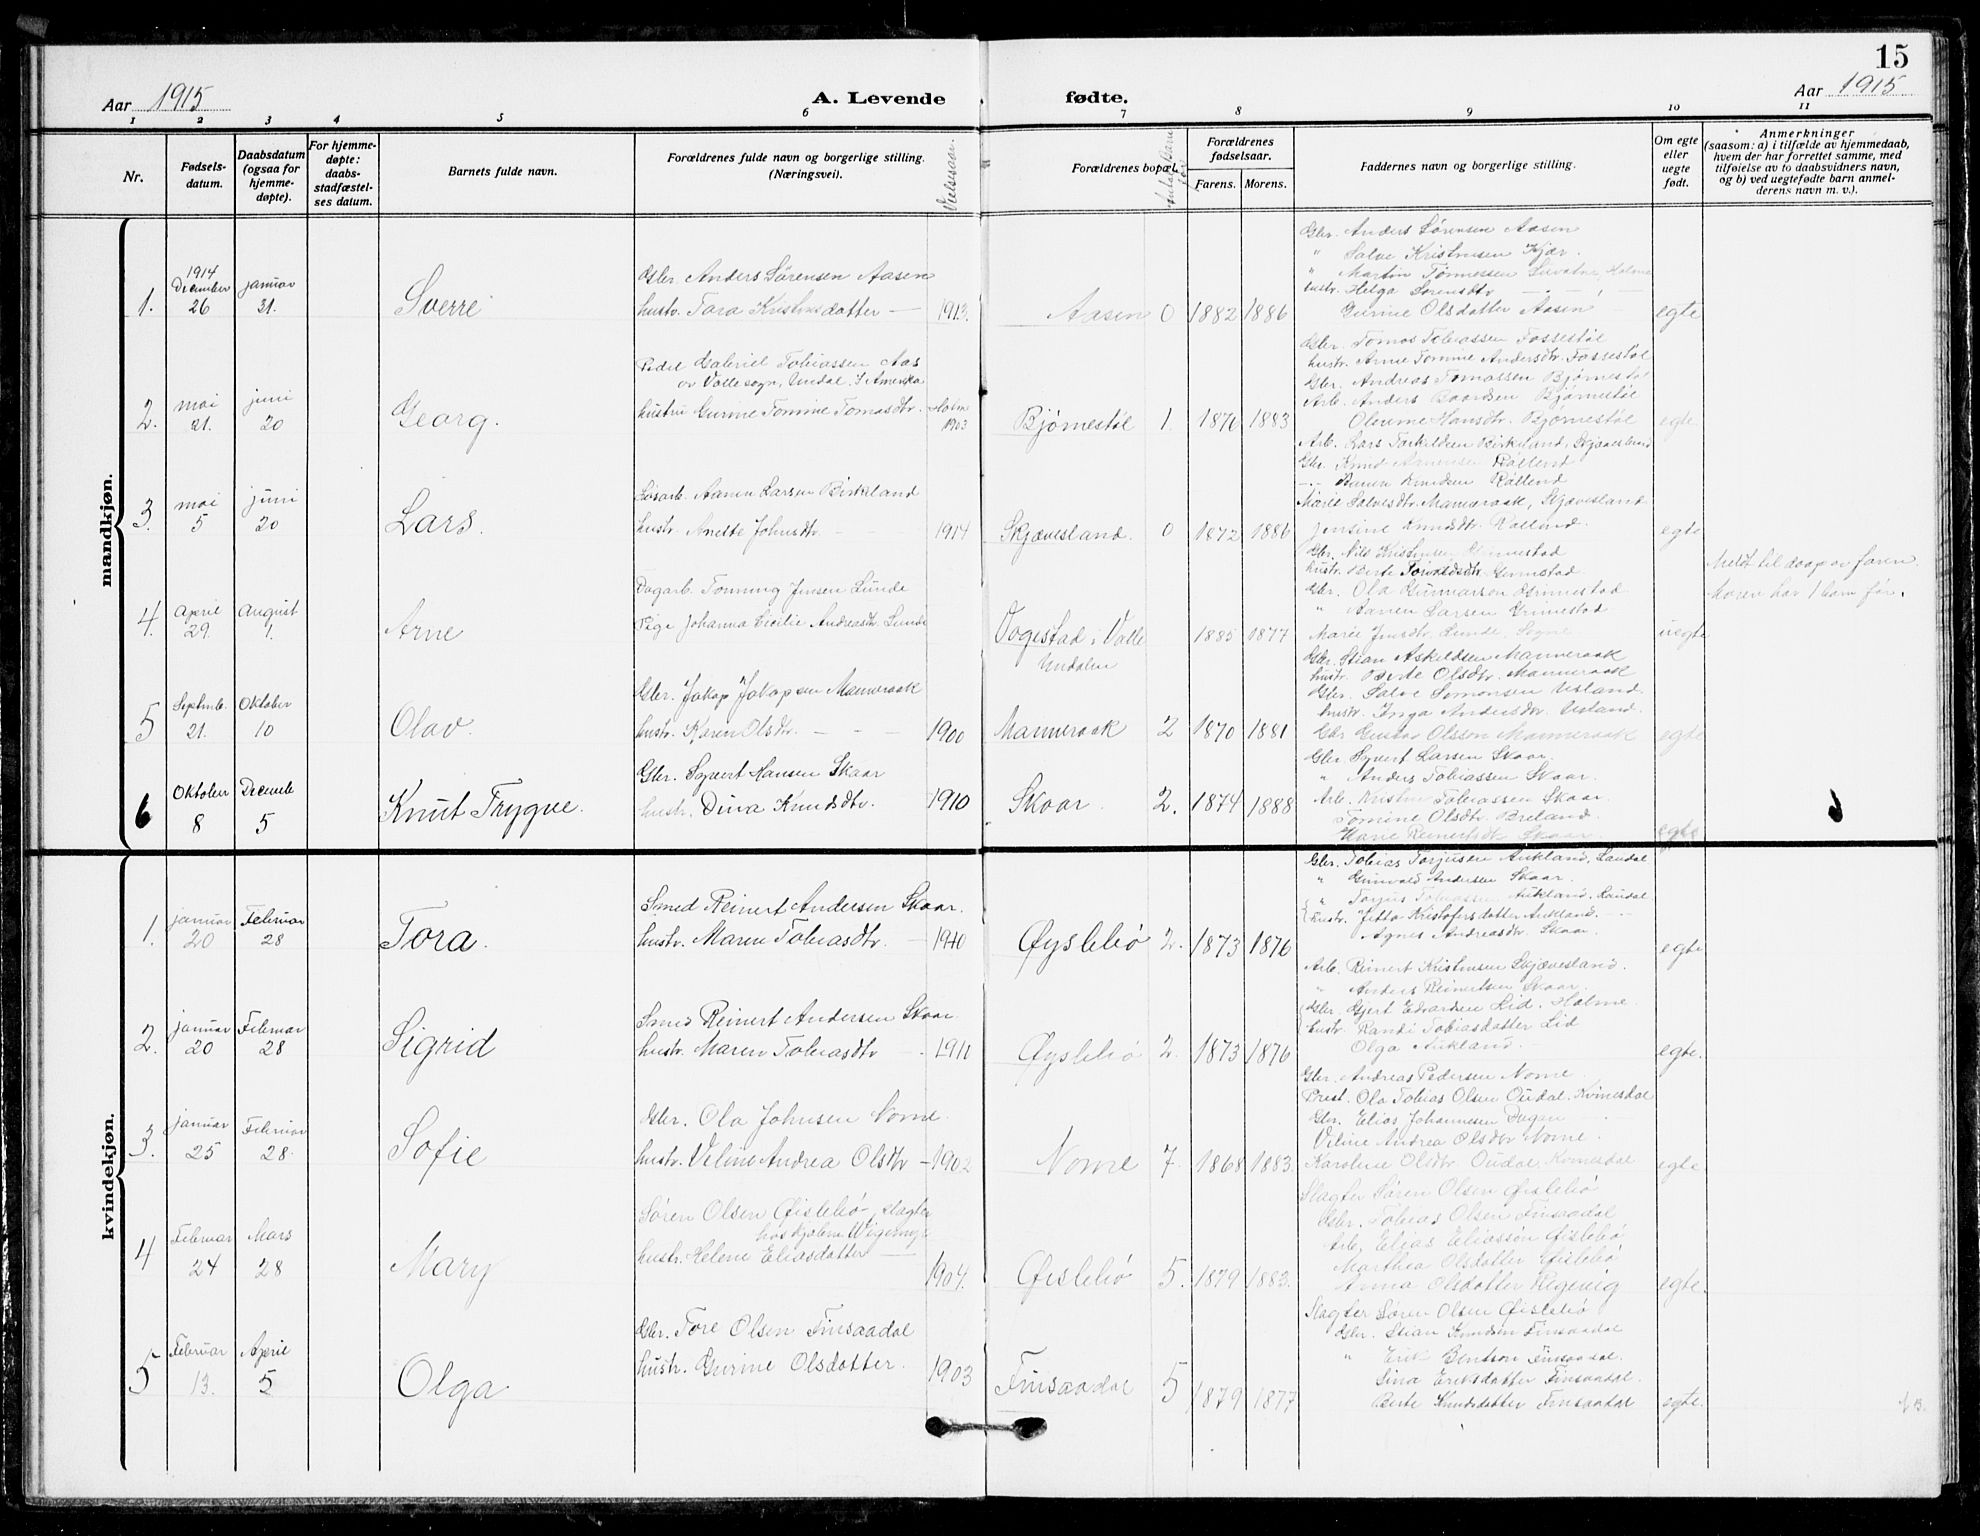 15
Aar 1915
A. Levende fødte.
Aar 1915
1 2 3 4 5 6 7 8 9 10 11
Nr.
Fødsels-datum.
Daabsdatum (ogsaa for hjemme-døpte).
For hjemme-døpte: daabs-stadfæstel-ses datum.
Barnets fulde navn.
Forældrenes fulde navn og borgerlige stilling. (Næringsvei).
Vielsesaar.
Forældrenes bopæl.
Forældrenes fødselsaar.
Farens. Morens.
Faddernes navn og borgerlige stilling.
Om egte eller uegte født.
Anmerkninger
(saasom: a) i tilfælde av hjemmedaab, hvem der har forrettet samme, med tilføielse av to daabsvidners navn, og b) ved uegtefødte barn anmel-derens navn m. v.).
mandkjøn.
1. 1914 December 26 januar 31. Sverre
Gbr. Anders Sørensen Aasen
hustr. Tora Kristinsdatter — 1913.
Aasen 0 1882 1886
Gbr. Anders Sørensen Aasen
" Salve Kristensen Kjær
" Martin Tønnessen Holme
hustr. Helga Sørensdtr
Gurine Olsdatter Aasen
egte
2. mai 21. juni 20 Georg.
Gabriel Tobiassen Aas
av Valle sogn, Undal. I Amerika
hustru Gurine Tomine Tomasdtr. Holme 1903
Bjørnestøl 1. 1876 1883
Gbr. Tomas Tobiassen Fossestøl
hustr. Anne Tomine Andersdtr. Fossestøl
Gbr. Andreas Tomassen Bjørnestøl
Arb. Anders Baardsen Bjørnestøl
Hansdtr. Bjørnestøl
egte
3. mai 5 juni 20 Lars.
Aanen Larsen Birkeland
hustr. Anette Johnsdtr. 1914
Skjævesland. 0 1872 1886
Arb. Lars Torkildsen Birkeland, Skjævesland
Gbr. Knud
Knudsen
Marie Salvesdtr. Manneraak, Skjævesland
Jensine Knudsdtr.
egte
4. April 29. August 1. Arne
Dagarb. Tønning Jensen Lunde
Pige Johanna Cecilie Andreasdtr. Lunde
Vogestad i Valle
Undalen
1885 1877
Gbr. Nils Kristensen
hustr. Berte
Gbr. Ola Gunnarsen
" Aanen Larsen
Marie Jensdtr. Lunde, Sogne
uegte
Meldt til daap av faren.
Moren har 1 barn før.
5 Septmb. 21. Oktober 10 Olav.
Gbr. Jakop Jakopsen Manneraak
hustr. Karen Olsdtr. 1900
Manneraak 2 1870 1881
Gbr. Stian Askildsen Manneraak
hustr. Berte Olsdtr. Manneraak
Gbr. Salve Simonsen Usland
hustr. Inga Andersdtr. Usland.
Gbr Gustav Olsson Manneraak
egte
6 Oktober 8 Decemb. 5 Knut Trygve.
Gbr. Syvert Hansen Skaar
hustr. Dina Knudsdtr. 1910
Skaar. 2. 1874 1888
Gbr. Syvert Larsen Skaar.
" Anders Tobiassen Skaar.
Arb. Kristen Tobiassen Skaar.
Tomine Olsdtr. Breland.
Marie Reinertsdtr Skaar.
egte
kvindekjøn.
1. januar 20 Februar 28 Tora.
Smed Reinert Andersen Skaar.
hustr. Maren Tobiasdtr. 1910
Øyslebø 2. 1873 1876
Gbr. Tobias Torjusen Aukland, Laudal
" Gunvald Andersen Skaar.
" Torjus Tobiassen Aukland. Laudal
hustr. Jetta Kristofersdatter Aukland.
Agnes Andreasdtr. Skaar.
egte
2. januar 20 Februar 28 Sigrid
Smed Reinert Andersen Skaar
hustr. Maren Tobiasdtr 1910
Øyslebø 2. 1873 1876
Arb. Reinert Kristensen Skjævesland.
" Anders Reinertsen Skaar.
Gbr. Gjert Edvardsen Lid. Holme.
hustr. Randi Tobiasdatter Lid
Olga Aukland.
egte.
3. januar 25 Februar 28. Sofie
Gbr. Ola Johnsen Nome.
hustr. Veline Andrea Olsdtr — 1902
Nome 7. 1868 1883.
Gbr. Andreas Pedersen Nome.
Prest. Ola Tobias Olsen Oudal, Kvinesdal
Gbr. Elias Johannesen
Veline Andrea Olsdtr Nome.
Karoline Olsdtr. Oudal, Kvinesdal
egte
4 Februar 24 Mars 28 Mary
Søren Olsen Øislebø, slagter
hustr. Helene Eliasdatter — 1904.
Øislebø 5. 1879 1883.
Slagter Søren Olsen Øislebø
Gbr. Tobias Olsen Finsaadal
Arb. Elias Eliassen Øislebø
Marthea Olsdatter Øislebø
Anna Olsdatter
egte.
5 Februar 13. April 5 Olga
Gbr. Tore Olsen Finsaadal
hustr. Gurine Olsdatter. 1903
Finsaadal 5 1879 1877
Slagter Søren Olsen Øislebø
Gbr. Stian Knudsen Finsaadal
" Erik Bentson Finsaadal.
Sina Eriksdatter Finsaadal.
Berte Knudsdatter Finsaadal
egte.